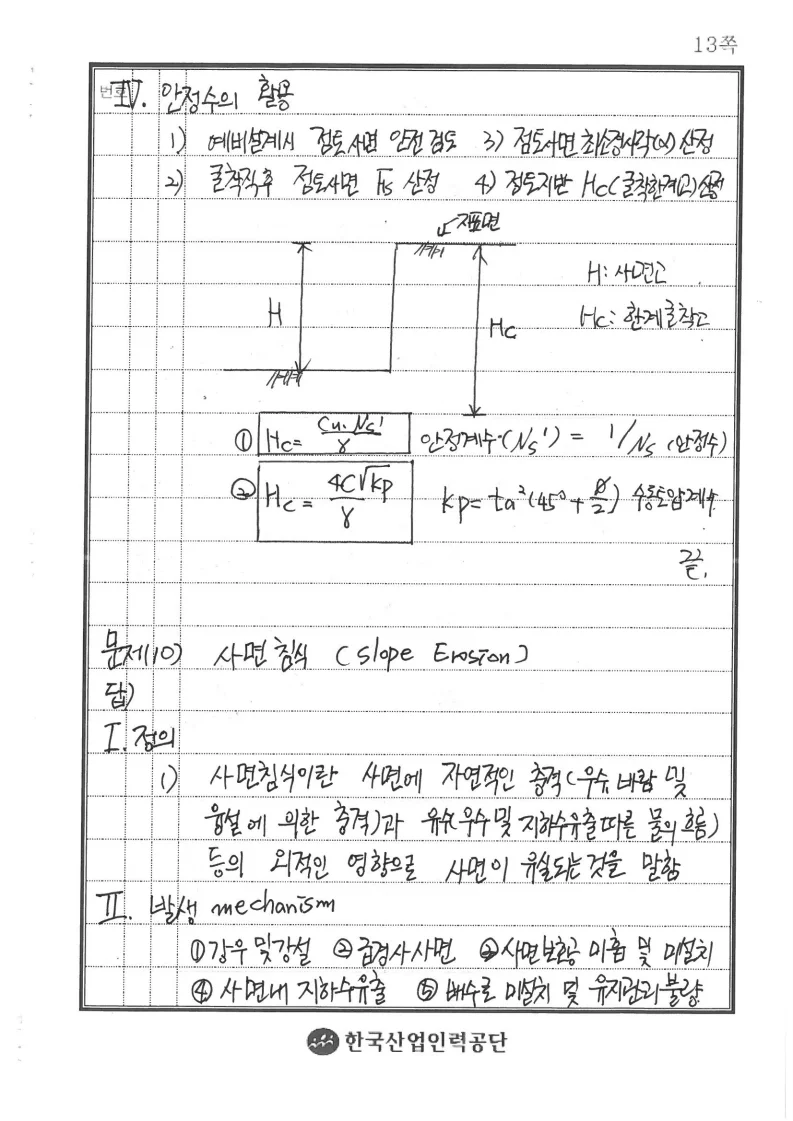 13쪽
번호
IV. 안정수의 활용
1) 예비설계시 점토사면 안전검토 3) 점토사면 최소경사각(α) 산정
2) 굴착직후 점토사면 Fs 산정 4) 점토지반 Hc(굴착한계고)산정
지표면
H: 사면고
H
Hc
Hc: 한계굴착고
① Hc = Cu·Ns' / γ 안정계수(Ns') = 1/Ns (안정수)
② Hc = 4C√kp / γ kp = ta²(45° + ø/2) 수동토압계수
끝.
문제10) 사면침식 (slope Erosion)
답)
I. 정의
1) 사면침식이란 사면에 자연적인 충격(우수 바람 및
융설에 의한 충격)과 유수(우수 및 지하수유출따른 물의 흐름)
등의 외적인 영향으로 사면이 유실되는 것을 말함
II. 발생 mechanism
①강우 및 강설 ②급경사사면 ③사면보호공 미흡 및 미설치
④ 사면내 지하수유출 ⑤ 배수로 미설치 및 유지관리 불량
한국산업인력공단